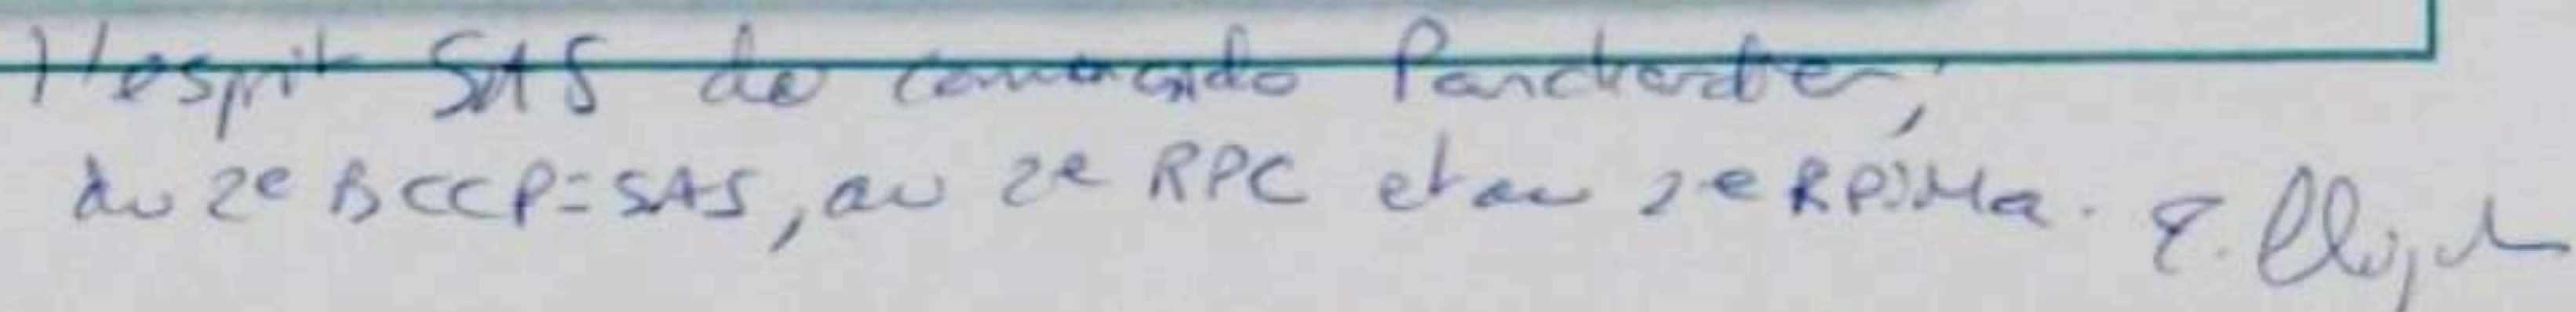 l'esprit SAS du commando Ponchardier,
du 2e BCCP=SAS, au 2e RPC et au 2e RPIMa.